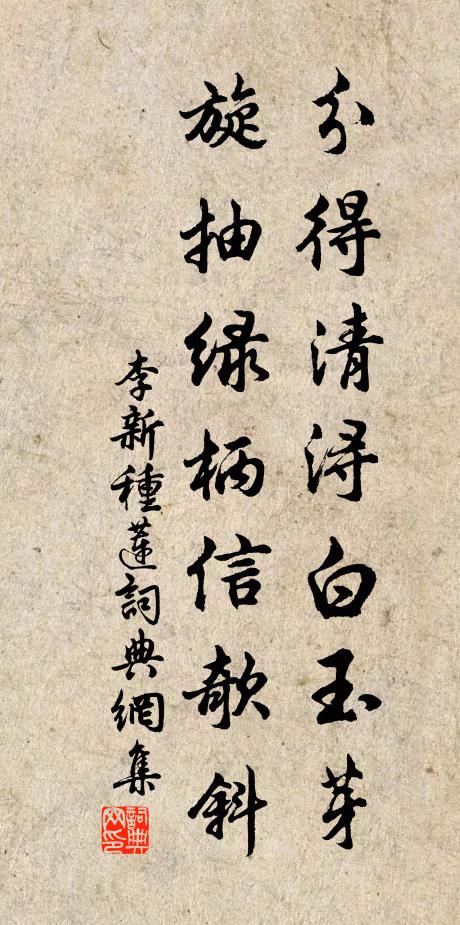 分得清浔白玉芽
旋抽绿柄信欹斜
李新種蓮詞典網集
詞典网印